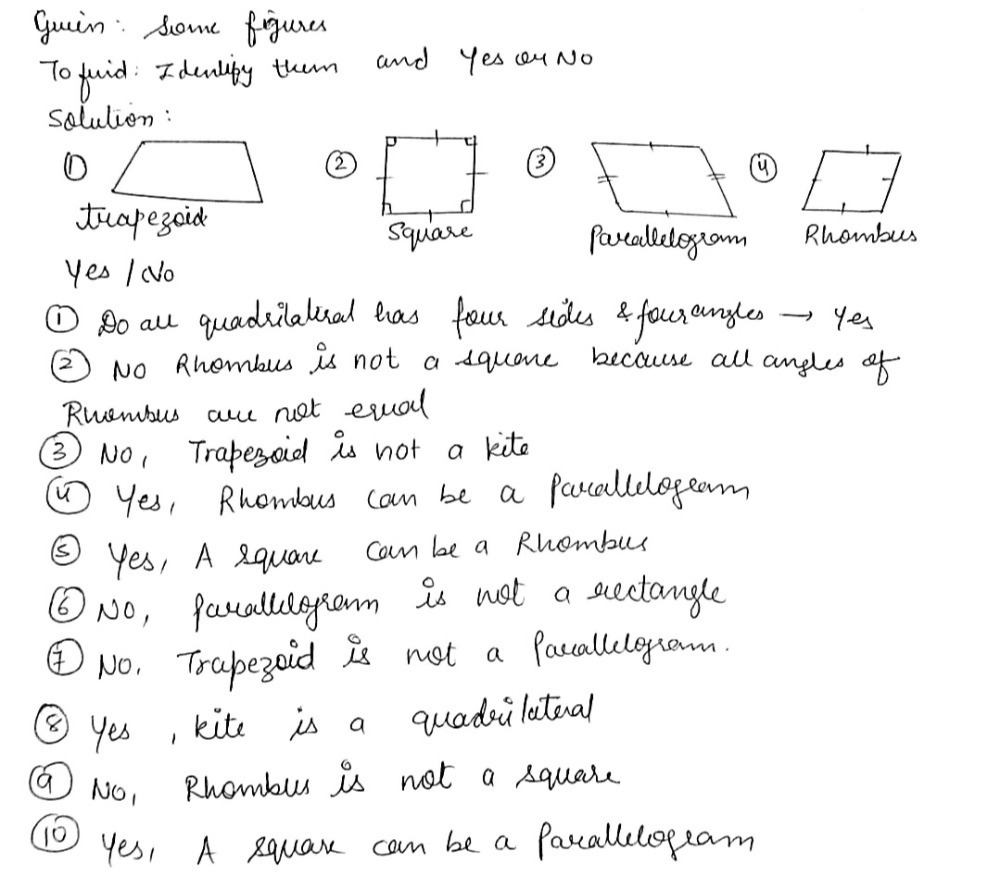 Given: Some figures
To find: Identify them and Yes or No
Solution:
① ② ③ ④
trapezoid Square Parallelogram Rhombus
Yes / No
① Do all quadrilateral has four sides & four angles → Yes
② No Rhombus is not a square because all angles of
Rhombus are not equal
③ No, Trapezoid is not a kite
④ Yes, Rhombus can be a Parallelogram
⑤ Yes, A square can be a Rhombus
⑥ No, parallelogram is not a rectangle
⑦ No. Trapezoid is not a Parallelogram.
⑧ Yes, kite is a quadrilateral
⑨ No, Rhombus is not a square
⑩ Yes, A square can be a Parallelogram